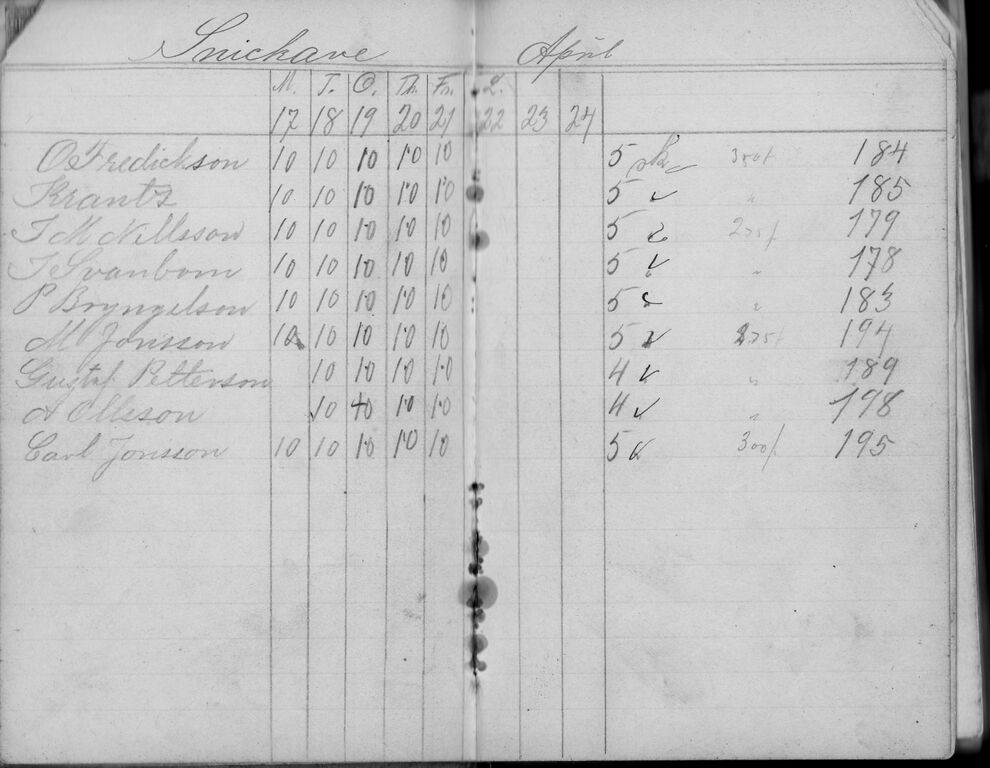 Snickare April
M. T. O. Th. Fr. L.
17 18 19 20 21 22 23 24
O Fredickson 10 10 10 10 10 5 350/ 184
Krantz 10 10 10 10 10 5 " 185
J M Nillsson 10 10 10 10 10 5 275/ 179
J Svanbom 10 10 10 10 10 5 " 178
P Bryngelson 10 10 10 10 10 5 " 183
M Jonsson 10 10 10 10 10 5 275/ 194
Gustaf Petterson 10 10 10 10 4 " 189
A Ollsson 10 10 10 10 4 " 198
Carl Jonsson 10 10 10 10 10 5 300/ 195